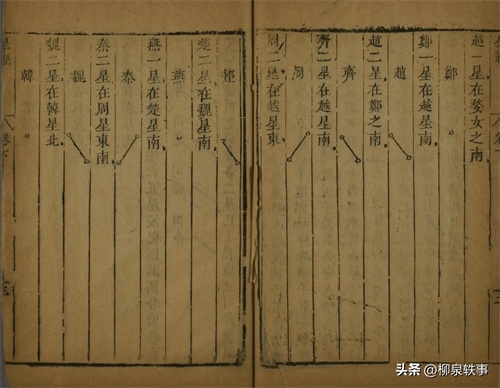 越一星在婺女之南
鄭
鄭一星在越星南
趙
趙二星在鄭之南
齊
齊二星在越星南
周
周二星在越星東
楚
楚二星在魏星南
燕
燕一星在楚星南
秦
秦二星在周星東南
魏
魏二星在韓星北
韓
星經
卷下
头条 @柳泉轶事